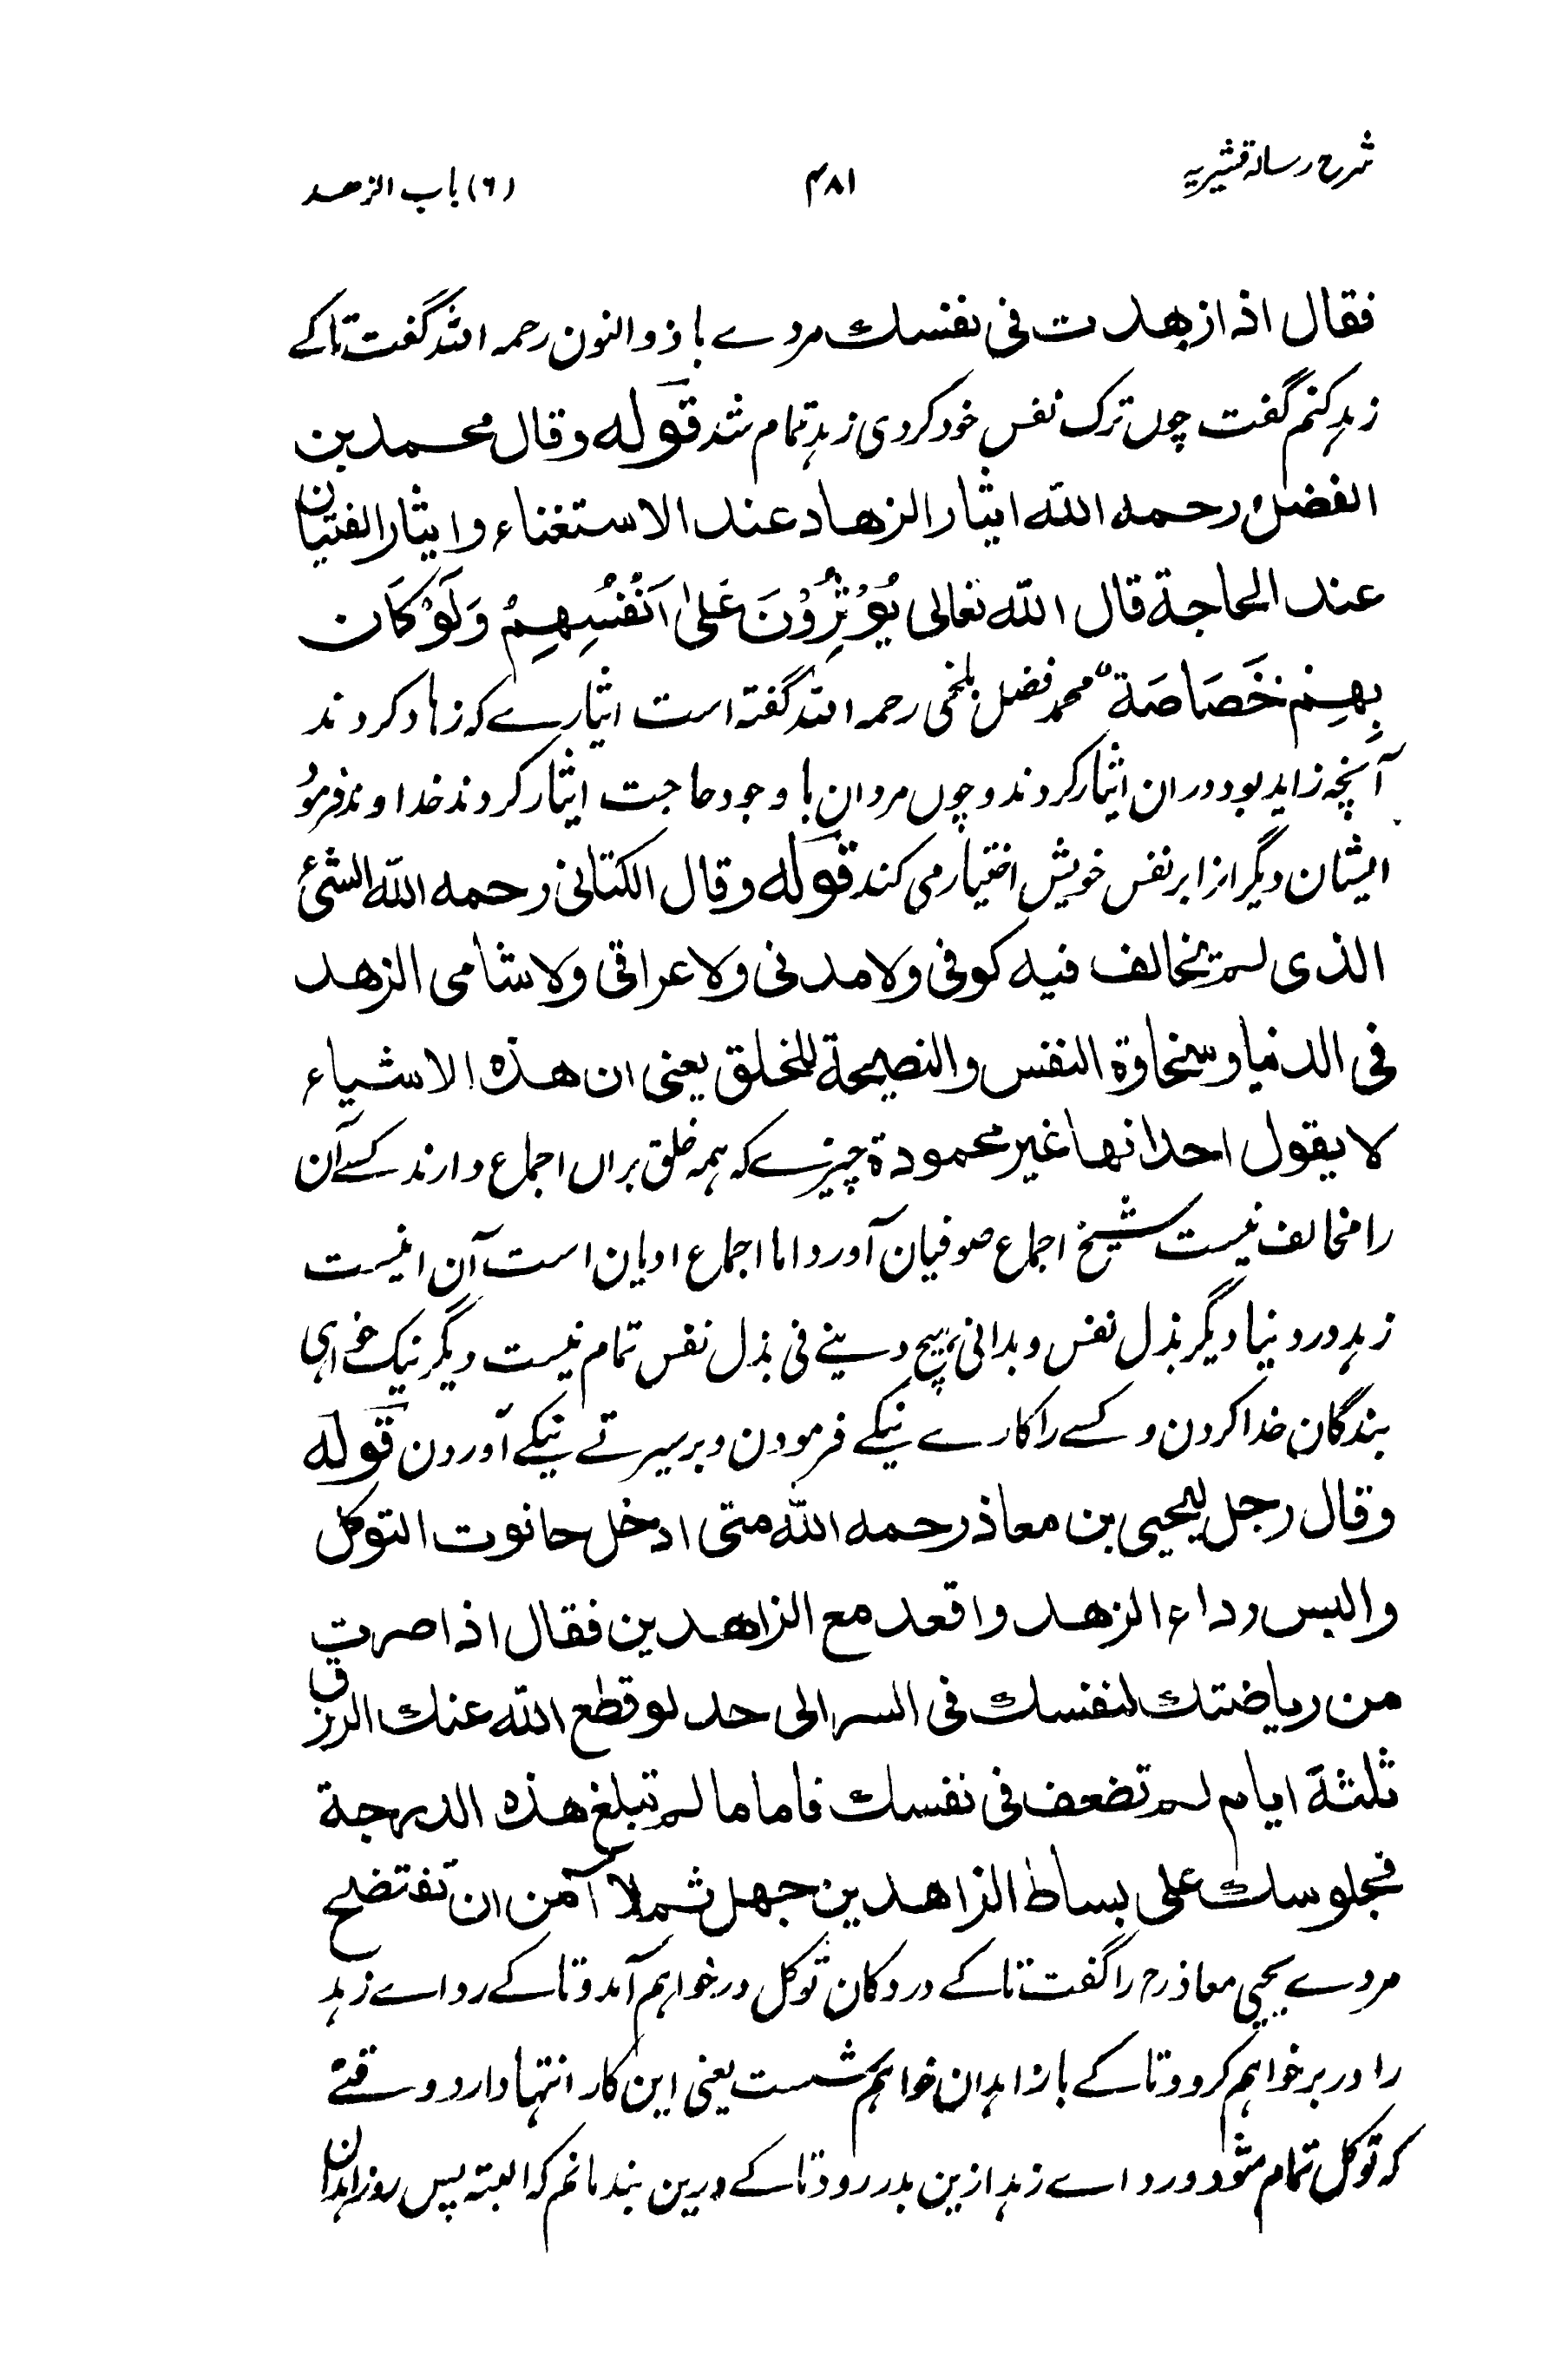 شرح رسالہ قشیریہ
۴۸۱
(۶) باب الزهد
فقال اذا زهدت فی نفسك مردے با ذوالنون رحمہ اللہ گفت تا کے
زہد کنم گفت چوں ترک نفس خود کردی زہد تمام شد قوله وقال محمد بن
الفضل رحمه الله ایثار الزهاد عند الاستغناء وایثار الفتیان
عند الحاجة قال الله تعالی یُؤْثِرُوْنَ عَلیٰ اَنْفُسِهِمْ وَلَوْ کَان
بِهِمْ خَصَاصَة محمد فضل بلخی رحمہ اللہ گفتہ است ایثارے کہ زہاد کردند
آنچہ زاید بود دران ایثار کردند و چوں مردان با وجود حاجت ایثار کردند خداوند فرمود
ایشان دیگر انرا بر نفس خویش اختیار می کند قوله وقال الکتانی رحمه الله الشئ
الذی لم یخالف فیه کوفی ولا مدنی ولا عراقی ولا شامی الزهد
فی الدنیا وسخاوة النفس والنصیحة للخلق یعنی ان هذه الاشیاء
لا یقول احد انها غیر محمودة چیزے کہ ہمہ خلق براں اجماع دارند کسے آن
را مخالف نیست شیخ اجماع صوفیان آورد اما اجماع ادیان است آن اینست
زہد در دنیا دیگر بذل نفس و بدانی ہیچ دینے فی بذل نفس تمام نیست دیگر نیک خواہی
بندگان خدا کردن و کسے را کارے نیکے فرمودن و بر سیرتے نیکے آوردن قوله
وقال رجل لیحیی بن معاذ رحمه الله متی ادخل حانوت التوکل
والبس رداء الزهد واقعد مع الزاهدین فقال اذا صرت
من ریاضتك لنفسك فی السر الی حد لو قطع الله عنك الرزق
ثلثة ایام لم تضعف فی نفسك فاما ما لم تبلغ هذه الدرجة
فجلوسك علی بساط الزاهدین جهل ثم لا آمن ان تفتضح
مردے یحیی معاذ رح را گفت تا کے در دکان توکل در خواہم آمد و تا کے رداے زہد
را در بر خواہم کرد و تا کے با زاہدان خواہم شست یعنی این کار انتہا دارد و وقتے
کہ توکل تمام شود و رداے زہد ازین بدر رود تا کے درین بند مانم کہ البتہ پس رو زاہدان